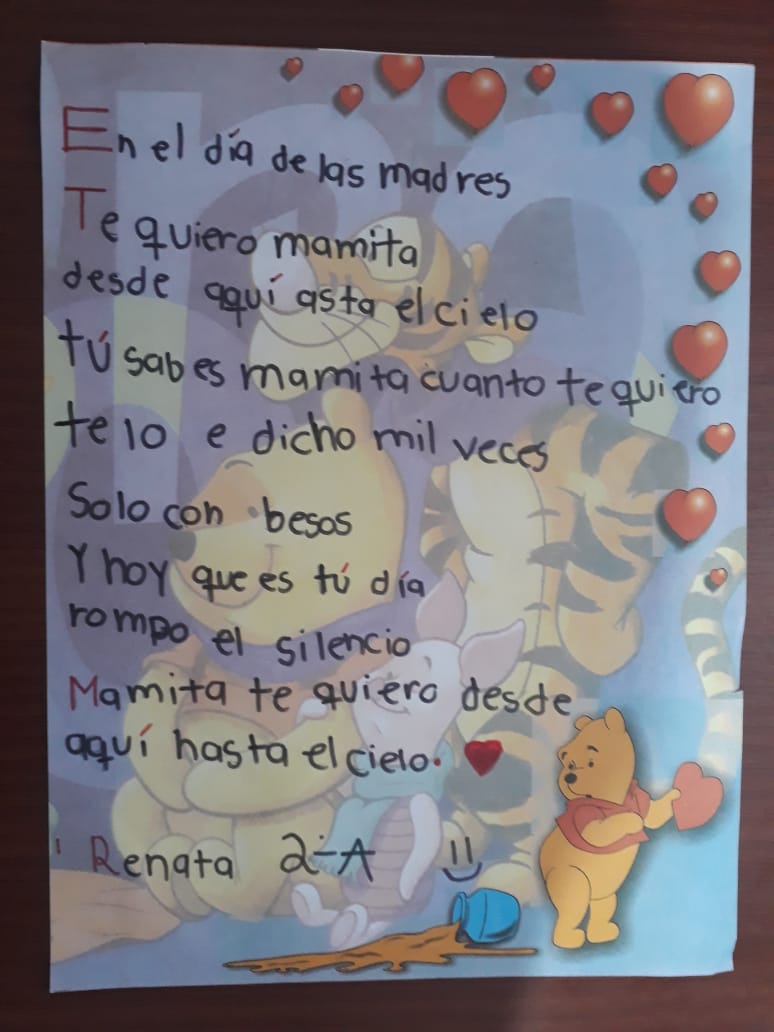 En el día de las madres
Te quiero mamita
desde aquí asta el cielo
tú sabes mamita cuanto te quiero
te lo e dicho mil veces
Solo con besos
Y hoy que es tú día
rompo el silencio
Mamita te quiero desde
aquí hasta el cielo.
Renata 2-A